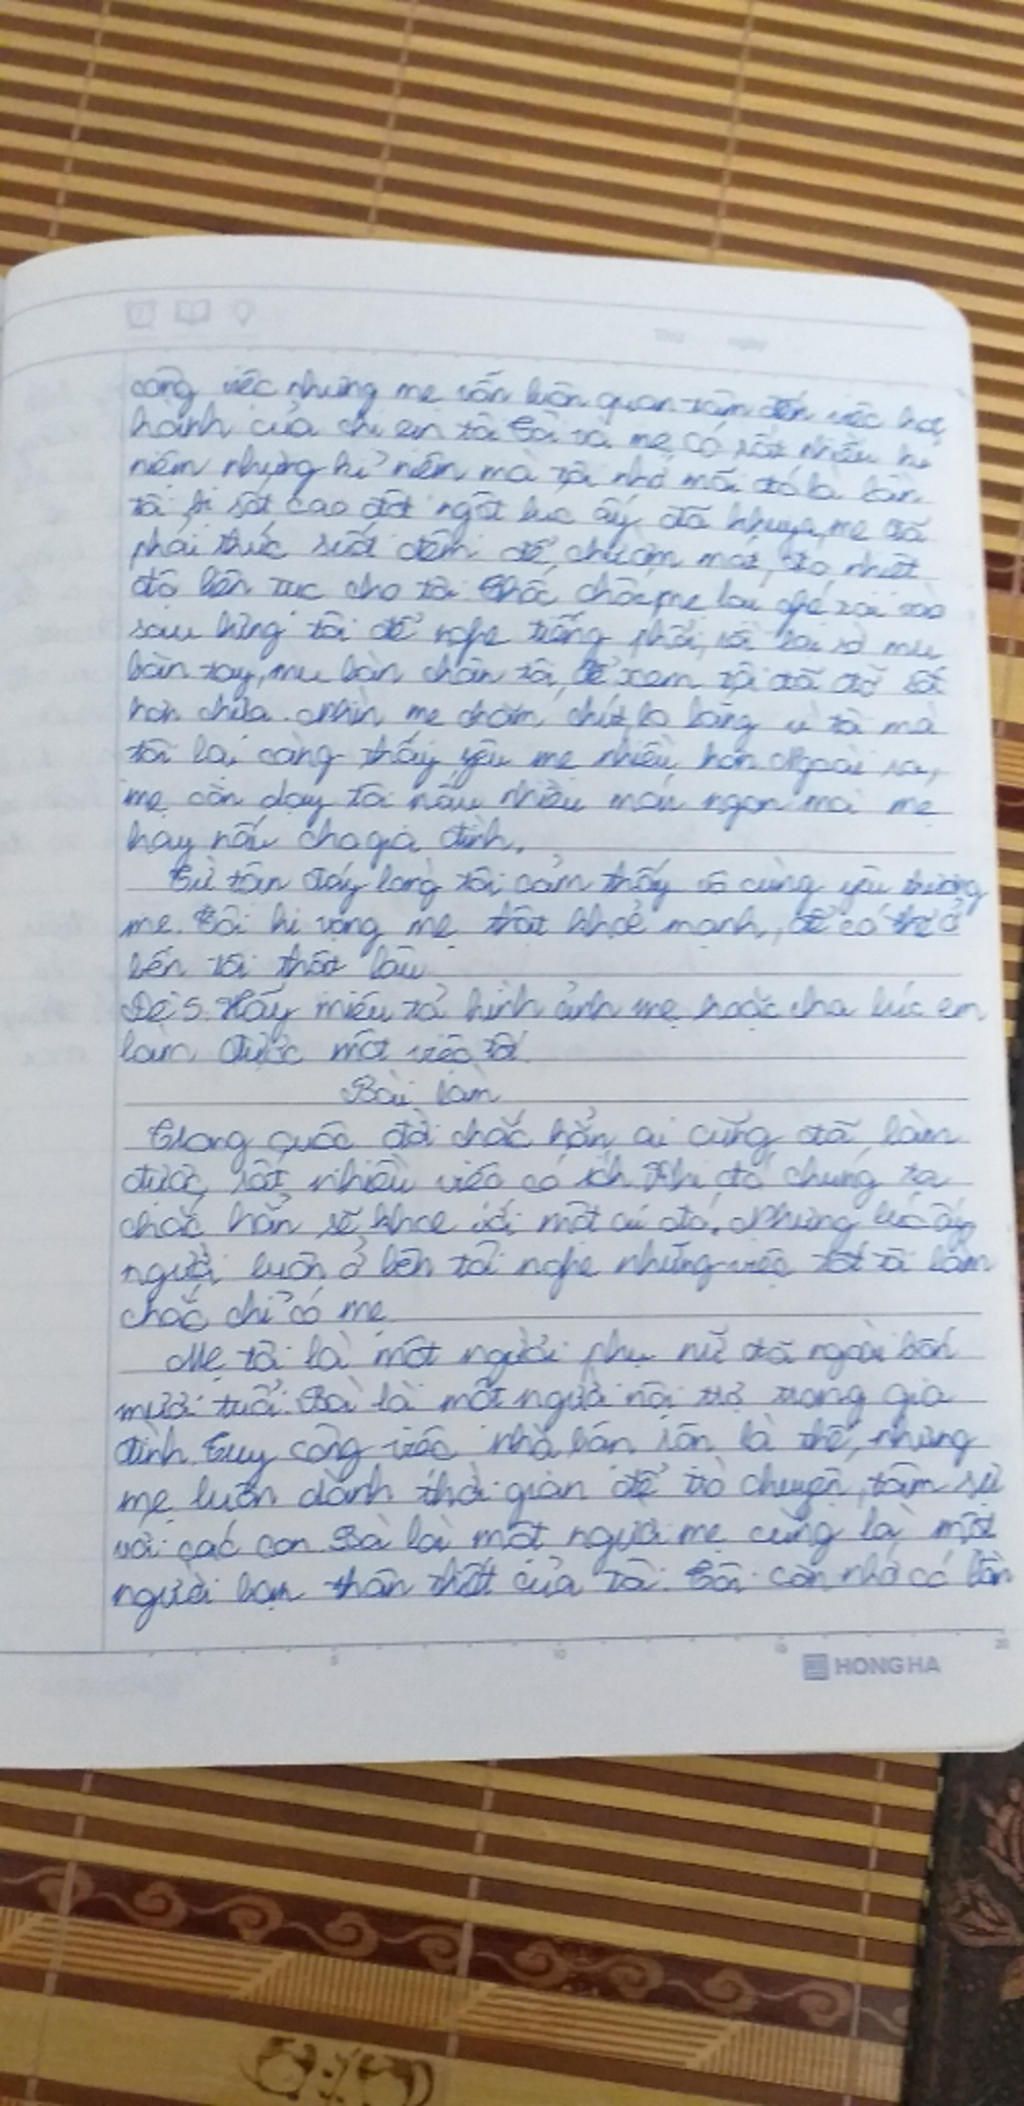 công việc nhưng mẹ vẫn luôn quan tâm đến việc học
hành của chị em tôi. Tôi và mẹ có rất nhiều kỉ
niệm nhưng kỉ niệm mà tôi nhớ mãi đó là lần
tôi bị sốt cao đột ngột lúc ấy đã khuya, mẹ đã
phải thức suốt đêm để chườm mát, đo nhiệt
độ liên tục cho tôi. Thốc chốc mẹ lại ghé tai vào
sau lưng tôi để nghe tiếng phổi, rồi lại sờ mu
bàn tay, mu bàn chân tôi, để xem tôi đã đỡ sốt
hơn chưa. Nhìn mẹ chăm chút lo lắng vì tôi mà
tôi lại càng thấy yêu mẹ nhiều hơn. Ngoài ra,
mẹ còn dạy tôi nấu nhiều món ngon mà mẹ
hay nấu cho gia đình.
Từ tận đáy lòng tôi cảm thấy vô cùng yêu thương
mẹ. Tôi hi vọng mẹ thật khoẻ mạnh, để có thể ở
bên tôi thật lâu
Đề 5. Hãy miêu tả hình ảnh mẹ hoặc cha lúc em
làm được một việc tốt.
Bài làm
Trong cuộc đời chắc hẳn ai cũng đã làm
được rất nhiều việc có ích. Khi đó chúng ta
chắc hẳn sẽ khoe với một ai đó. Nhưng lúc ấy
người luôn ở bên tôi nghe những việc tốt tôi làm
chắc chỉ có mẹ
Mẹ tôi là một người phụ nữ đã ngoài bốn
mươi tuổi. Bà là một người nội trợ trong gia
đình. Tuy công việc nhà bận rộn là thế, nhưng
mẹ luôn dành thời gian để trò chuyện, tâm sự
với các con. Bà là một người mẹ cũng là một
người bạn thân thiết của tôi. Tôi còn nhớ có lần
HONG HA